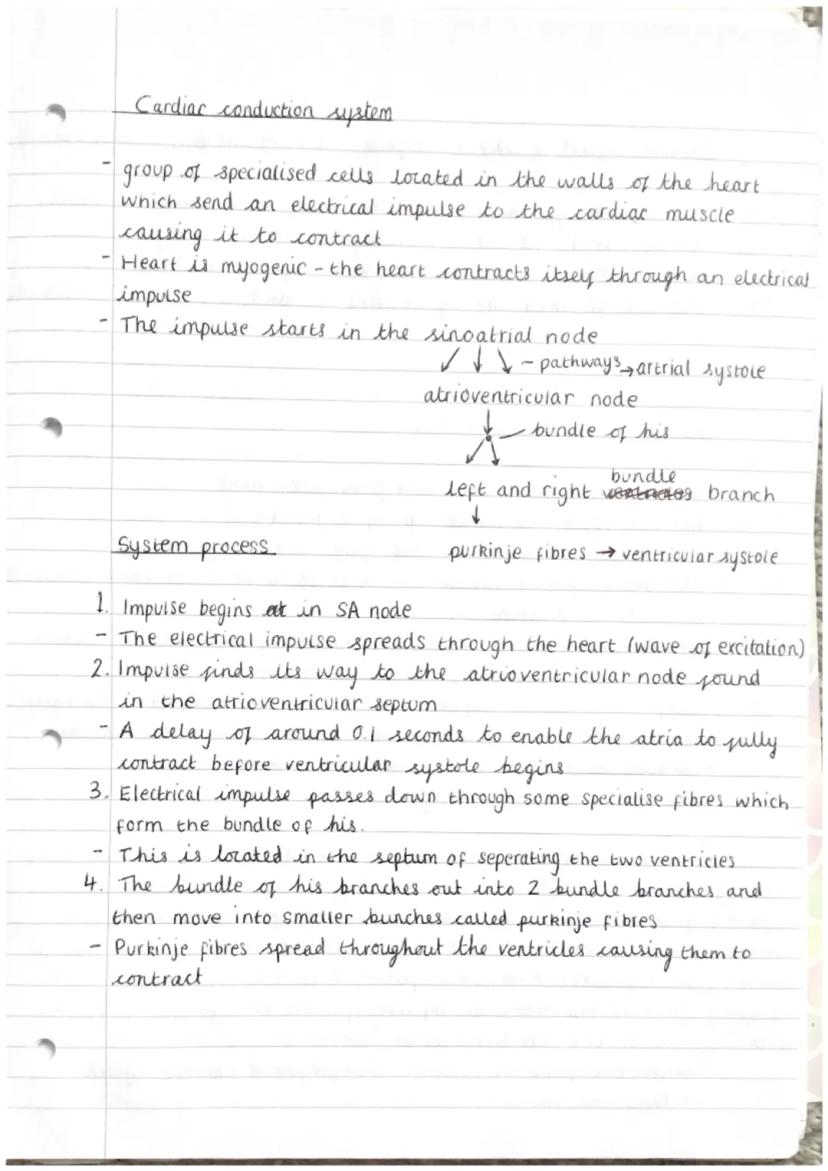 Cardiac conduction system
- group of specialised cells located in the walls of the heart
which send an electrical impulse to the cardiac muscle
causing it to contract
- Heart is myogenic - the heart contracts itself through an electrical
impulse
- The impulse starts in the sinoatrial node
↙ ↓ ↘ - pathways → artrial systole
atrioventricular node
↓ bundle of his
↙ ↘
bundle
left and right branch
↓
System process
purkinje fibres → ventricular systole
1. Impulse begins in SA node
- The electrical impulse spreads through the heart (wave of excitation)
2. Impulse finds its way to the atrioventricular node found
in the atrioventricular septum
- A delay of around 0.1 seconds to enable the atria to fully
contract before ventricular systole begins
3. Electrical impulse passes down through some specialise fibres which
form the bundle of his.
- This is located in the septum of seperating the two ventricles
4. The bundle of his branches out into 2 bundle branches and
then move into smaller bunches called purkinje fibres
- Purkinje fibres spread throughout the ventricles causing them to
contract